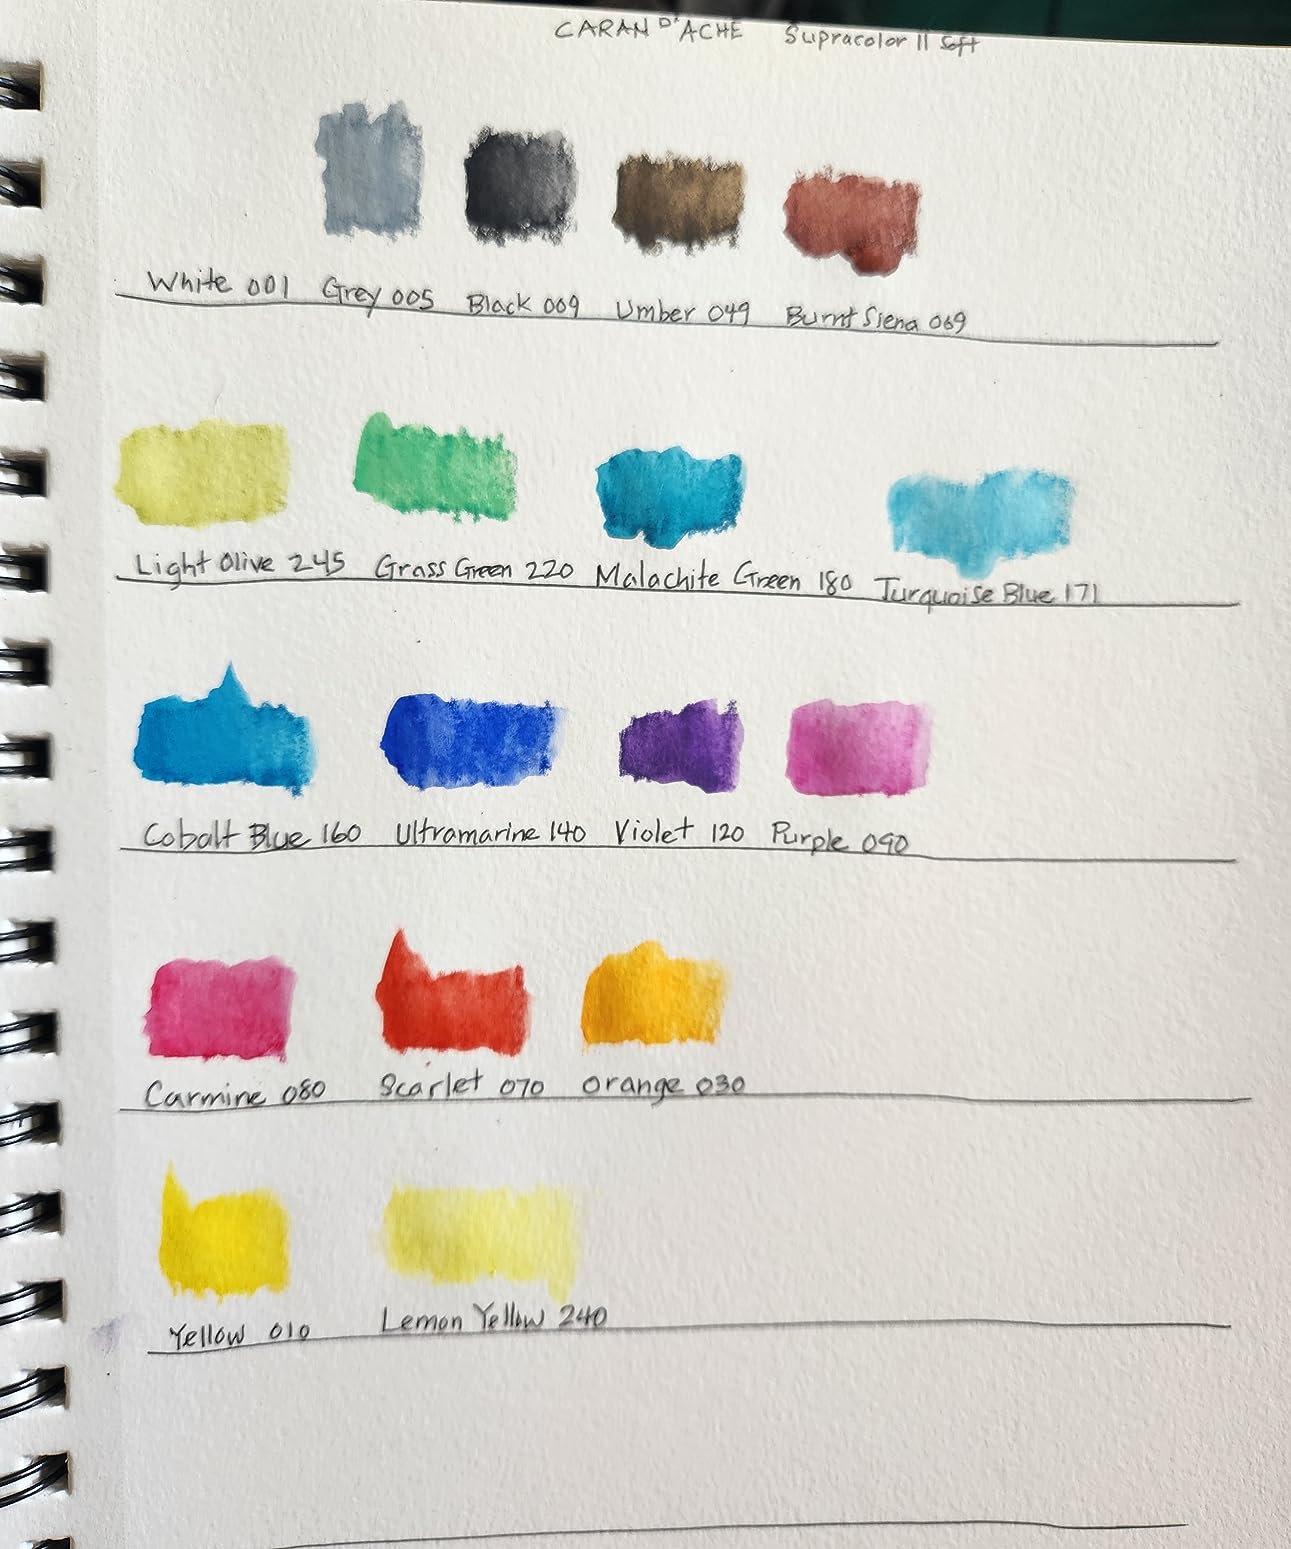 CARAN D'ACHE Supracolor II Soft
White 001 Grey 005 Black 009 Umber 049 Burnt Siena 069
Light Olive 245 Grass Green 220 Malachite Green 180 Turquoise Blue 171
Cobalt Blue 160 Ultramarine 140 Violet 120 Purple 090
Carmine 080 Scarlet 070 Orange 030
Yellow 010 Lemon Yellow 240